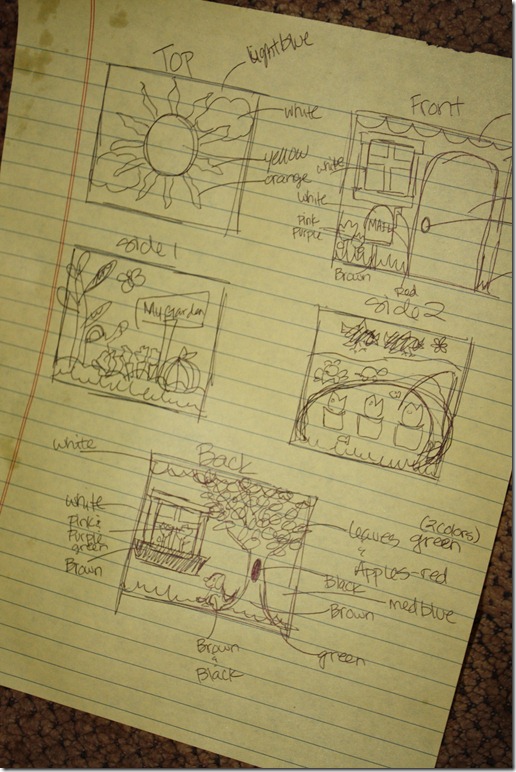 Top
lightblue
white
yellow
orange
Front
white
white
Pink
Purple
MAIL
Brown
Red
side 1
My Garden
side 2
Back
white
white
Pink &
Purple
green
Brown
Brown
&
Black
leaves green (2 colors)
&
Apples-red
Black
Brown
med blue
green